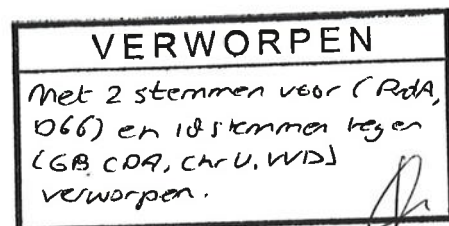 VERWORPEN
Met 2 stemmen voor (PvdA,
D66) en 18 stemmen tegen
(GB, CDA, ChrU, VVD)
verworpen.